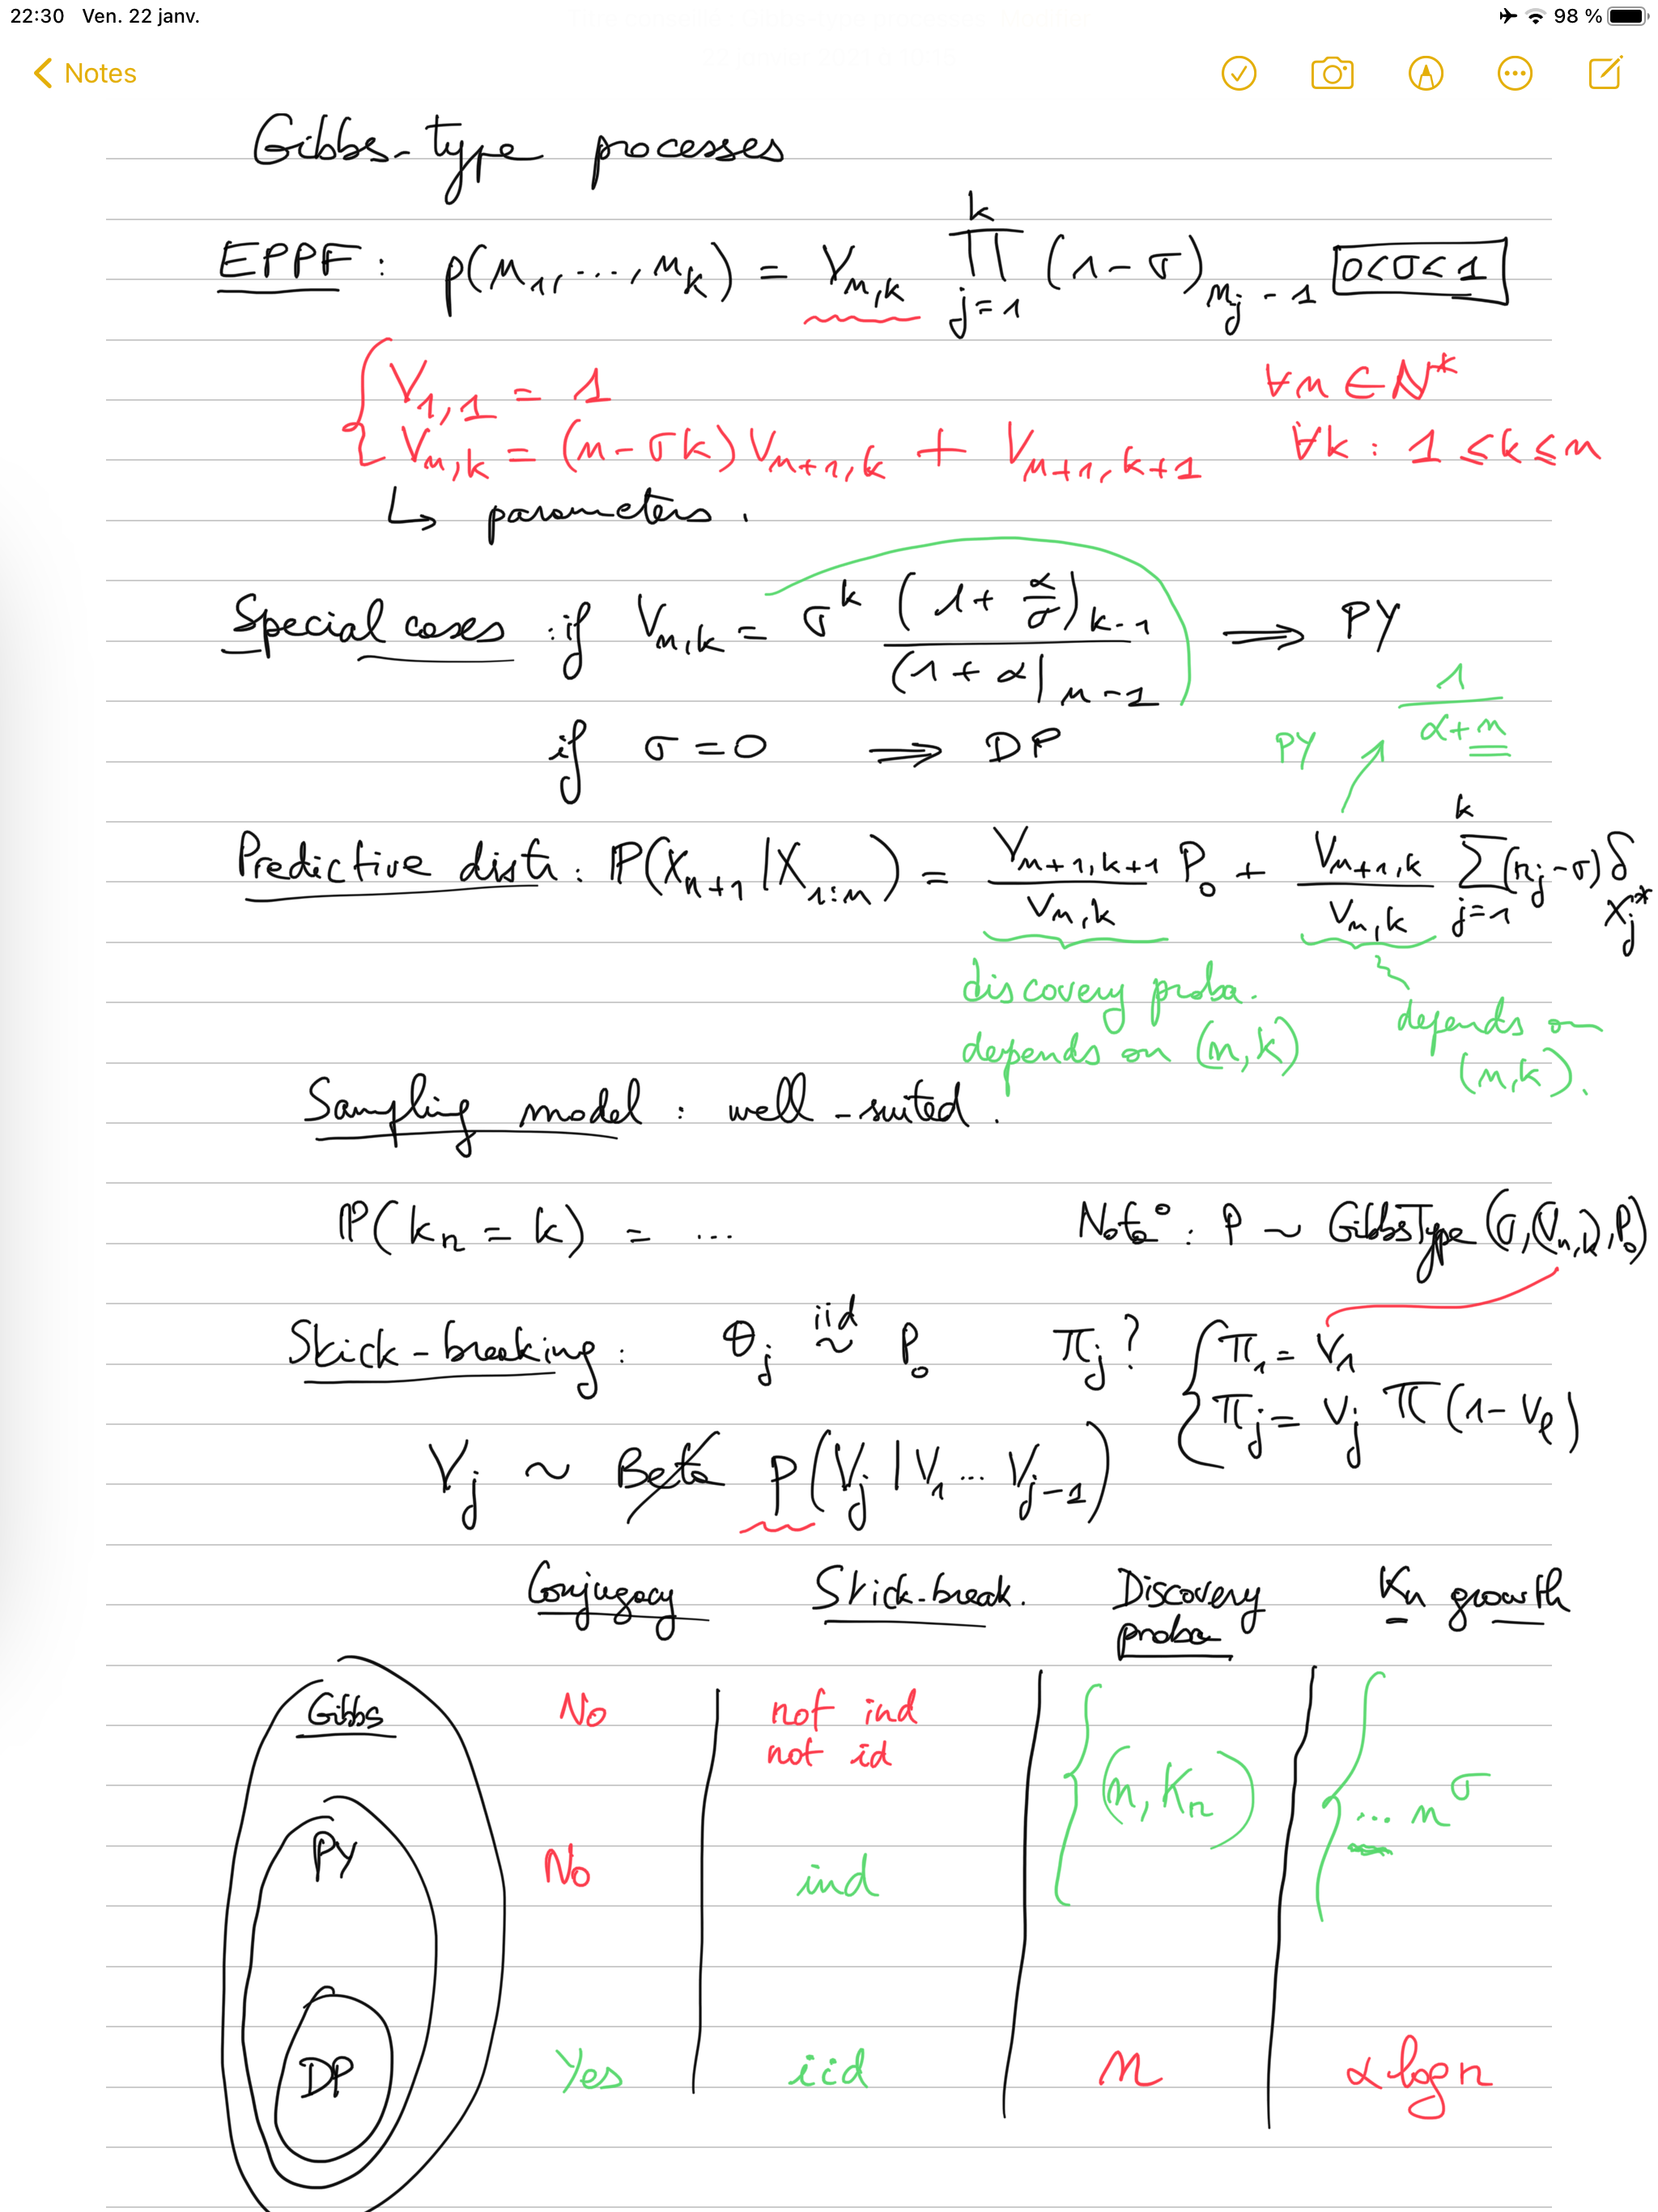 22:30 Ven. 22 janv.
98 %
Notes
Gibbs-type processes
EPPF : p(n₁, ..., n_k) = V_{n,k} ∏_{j=1}^{k} (1-σ)_{n_j - 1} 0<σ<1
V_{1,1} = 1 ∀n ∈ ℕ*
V_{n,k} = (n-σk) V_{n+1,k} + V_{n+1,k+1} ∀k : 1 ≤ k ≤ n
↳ parameters.
Special cases : if V_{n,k} = σ^k (1 + α/σ)_{k-1} / (1+α)_{n-1} ⟹ PY
if σ = 0 ⟹ DP
PY ↗ 1/(α+n)
Predictive distr : ℙ(X_{n+1} | X_{1:n}) = V_{n+1,k+1}/V_{n,k} P₀ + V_{n+1,k}/V_{n,k} ∑_{j=1}^{k} (n_j-σ) δ_{X_j^*}
discovery proba. depends on
depends on (n,k) (n,k).
Sampling model : well-suited.
ℙ(k_n = k) = ... Nota° : P ~ GibbsType (σ, (V_{n,k}), P₀)
Stick-breaking : θ_j iid ~ P₀ π_j ? { π₁ = V₁
π_j = V_j π (1-V_ℓ)
V_j ~ Beta p(V_j | V₁ ... V_{j-1})
Conjugacy Stick-break. Discovery proba K_n growth
Gibbs No not ind
not id
(n, K_n) ... n^σ
PY No ind
DP Yes iid n α log n